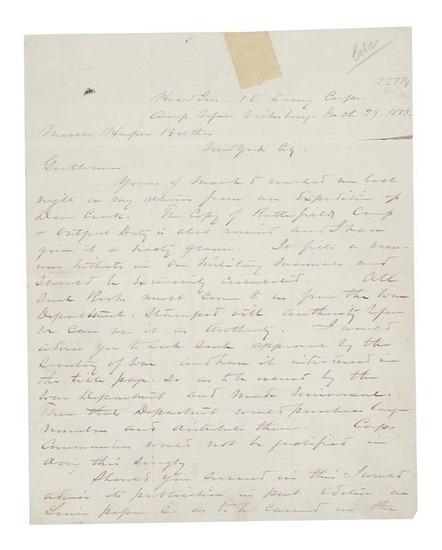 Head Qrs. 15 Army Corps.
Camp Before Vicksburg, Mch 29. 1863.
Messrs Harper Brothers
New York City.
Gentlemen.
Yours of March reached me last
night on my return from an Expedition up
Deer Creek. The Copy of Butterfields Camp
& Outpost Duty is also received and I have
given it a hasty glance. It fills a
hitherto in our Military Manuals and
should be extensively circulated. All
such Books must come to us from the War
Department. Stamped with authority before
we can use it as Authority. I would
advise you to seek such approval by the
Secretary of War. and have it introduced in
the title page. so as to be issued by the
War Department and made Universal.
Then that Department would purchase large
numbers and distribute them. Corps
Commanders would not be justified in
doing this singly.
Should you succeed in this I would
advise its publication in Edition on
Linen paper so as to be carried in the